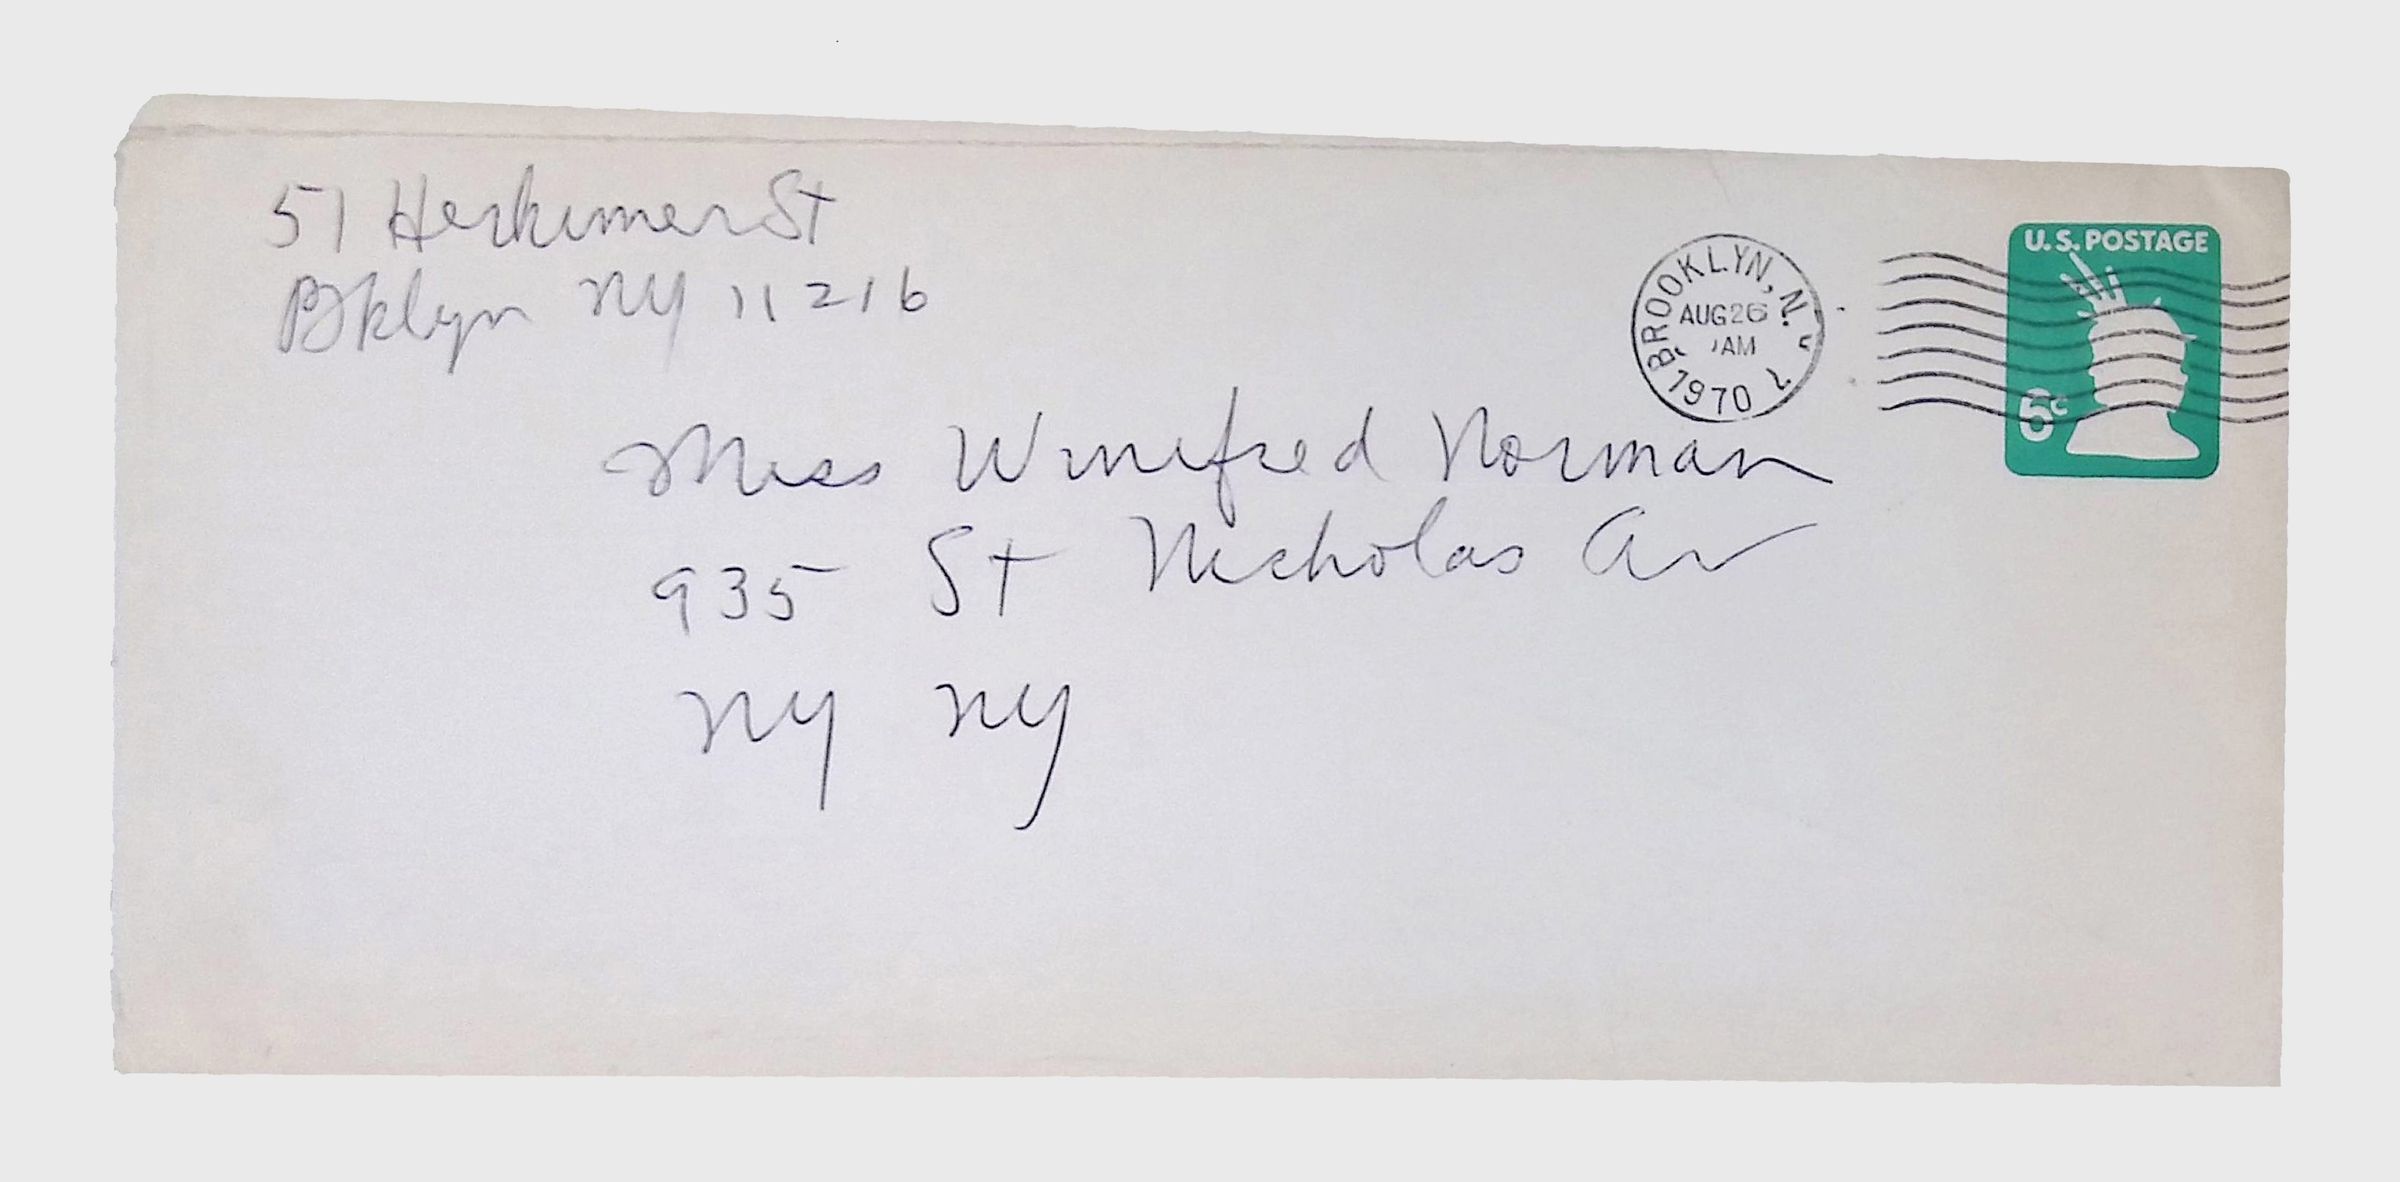 51 Herkimer St
Bklyn NY 11216
U.S. POSTAGE
6c
BROOKLYN, N.
AUG 26
AM
1970
Miss Winifred Norman
935 St Nicholas Av
NY NY